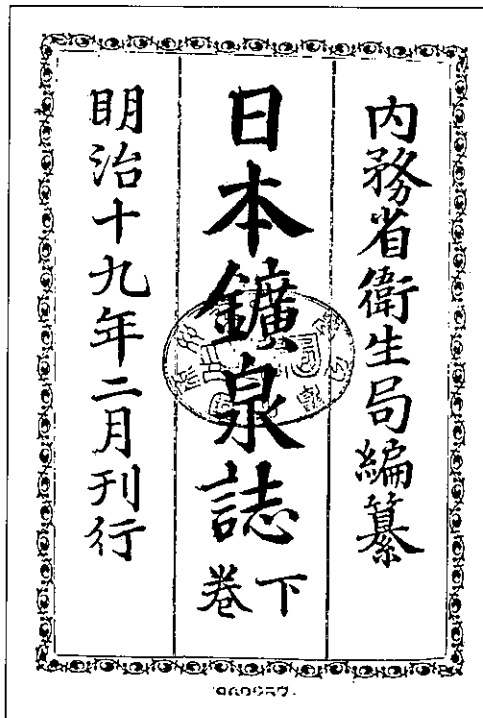 内務省衛生局編纂
日本鑛泉誌
下卷
明治十九年二月刊行